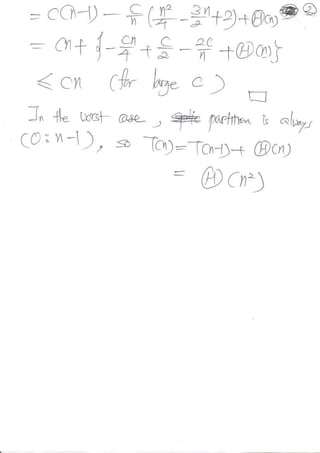 = c(n-1) - c/n (n²/4 - 3n/2 + 2) + Θ(n) ②
= cn + { - cn/4 + c/2 - 2c/n + Θ(n)}
≤ cn (for large c) □
In the worst case, partition is always
(0 : n-1), so T(n) = T(n-1) + Θ(n)
= Θ(n²)